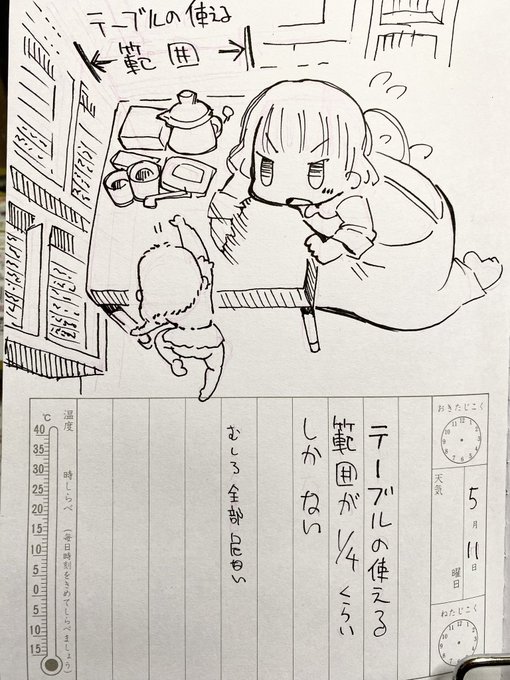 テーブルの使える
範囲
おきたじこく
天気
5月11日
曜日
ねたじこく
テーブルの使える
範囲が1/4くらい
しかない
むしろ全部危ない
温度
時しらべ(毎日時刻をきめてしらべましょう)
℃
40
35
30
25
20
15
10
5
0
5
10
15